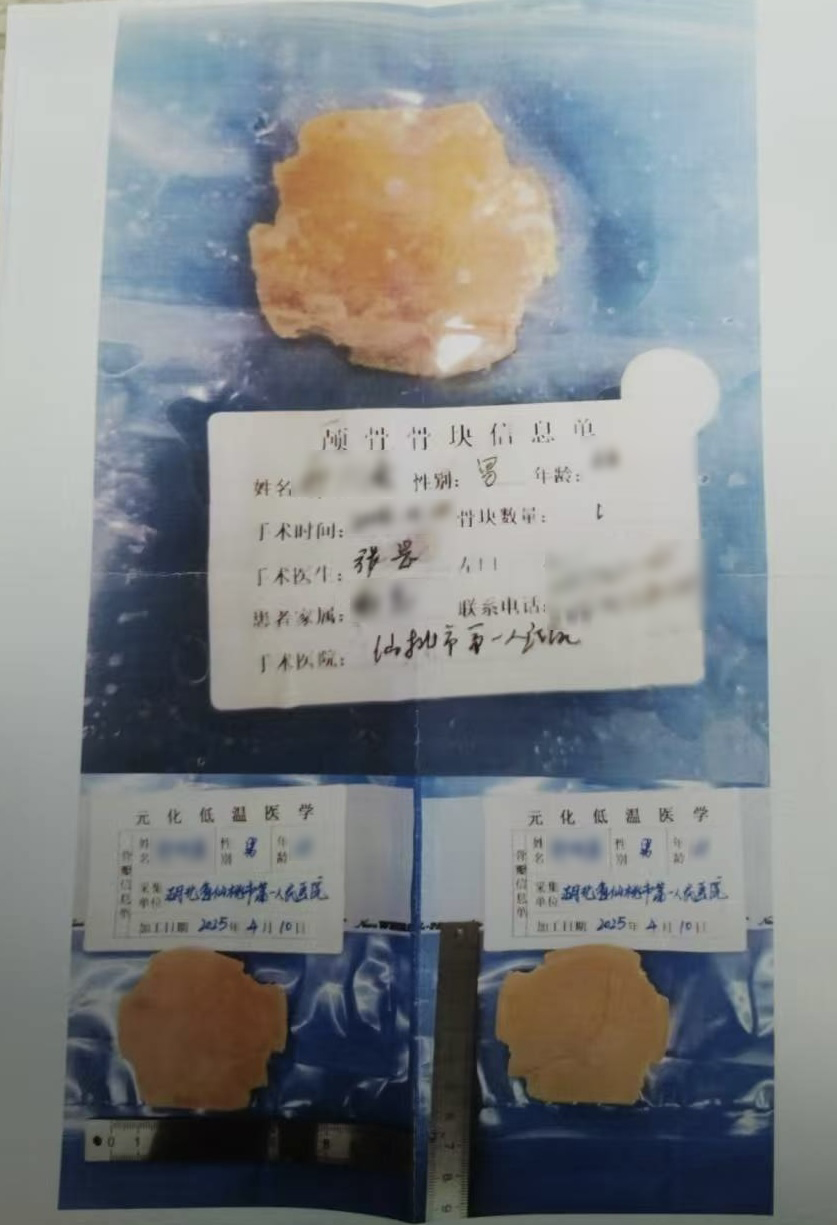 颅骨骨块信息单
姓名 性别: 男 年龄:
手术时间: 骨块数量:
手术医生: 张
患者家属: 联系电话:
手术医院: 仙桃市第一人民医院
元化低温医学
骨瓣信息单
姓名 性别 男 年龄
采集单位 湖北省仙桃市第一人民医院
加工日期 2025年4月10日
0 1
元化低温医学
骨瓣信息单
姓名 性别 男 年龄
采集单位 湖北省仙桃市第一人民医院
加工日期 2025年4月10日
7
8
9